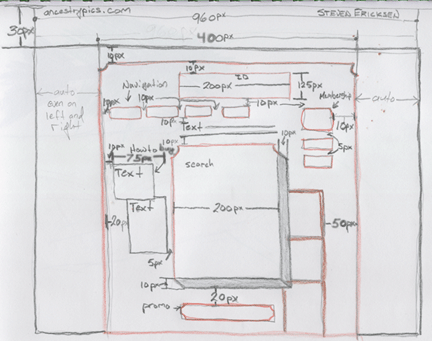 ancestrypics.com
960px
STEVEN ERICKSEN
30px
400px
10px
10px
auto
even on
left and
right
Navigation
200px
125px
Membership
auto
1px
10px
10px
10px
10px
Text
10px
5px
10px
10px
How to
75px
search
Text
Text
200px
20px
50px
5px
10px
20px
promo